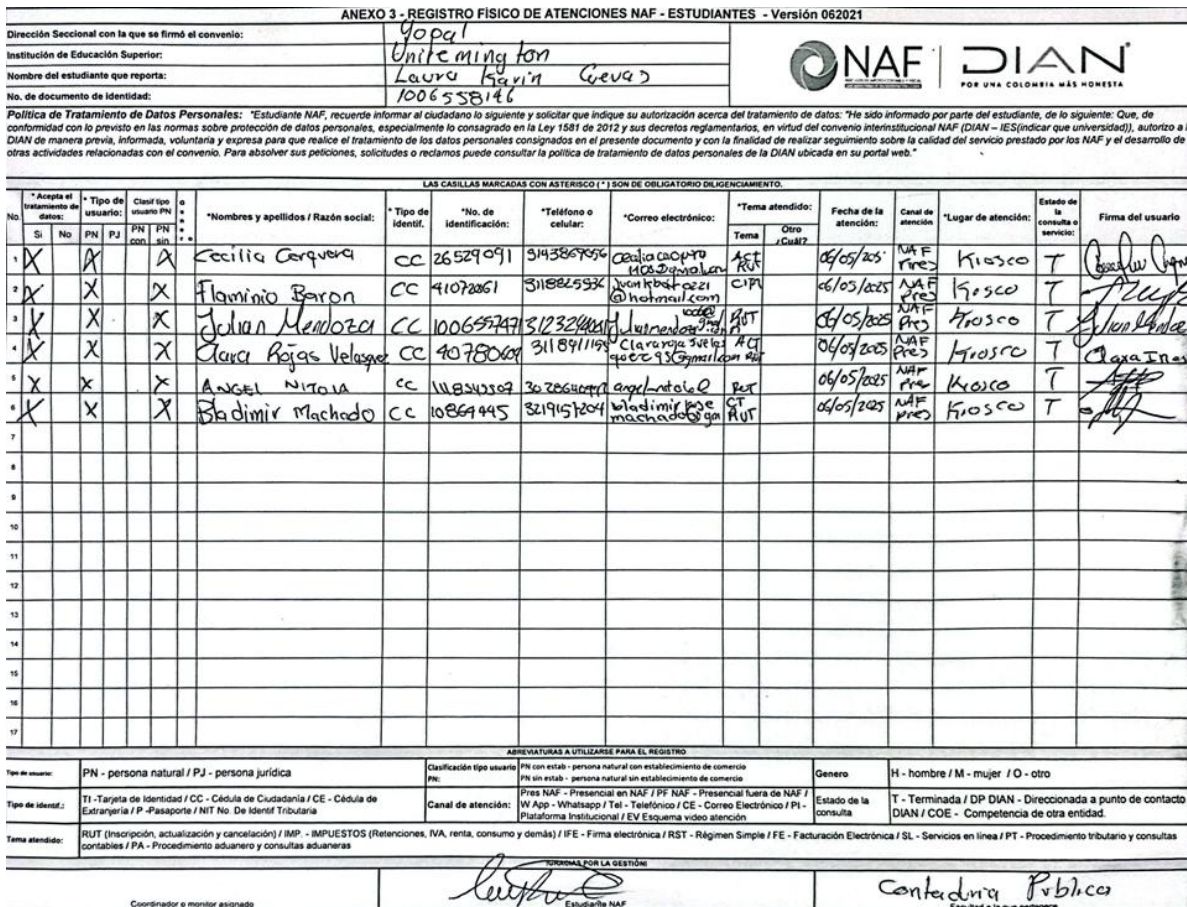 ANEXO 3 - REGISTRO FÍSICO DE ATENCIONES NAF - ESTUDIANTES - Versión 062021
Dirección Seccional con la que se firmó el convenio: Yopal
Institución de Educación Superior: Uniremington
Nombre del estudiante que reporta: Laura Karin Cuevas
No. de documento de identidad: 1006558146
NAF DIAN
POR UNA COLOMBIA MÁS HONESTA
Política de Tratamiento de Datos Personales: "Estudiante NAF, recuerde informar al ciudadano lo siguiente y solicitar que indique su autorización acerca del tratamiento de datos: "He sido informado por parte del estudiante, de lo siguiente: Que, de
conformidad con lo previsto en las normas sobre protección de datos personales, especialmente lo consagrado en la Ley 1581 de 2012 y sus decretos reglamentarios, en virtud del convenio interinstitucional NAF (DIAN – IES(indicar que universidad)), autorizo a l
DIAN de manera previa, informada, voluntaria y expresa para que realice el tratamiento de los datos personales consignados en el presente documento y con la finalidad de realizar seguimiento sobre la calidad del servicio prestado por los NAF y el desarrollo de
otras actividades relacionadas con el convenio. Para absolver sus peticiones, solicitudes o reclamos puede consultar la política de tratamiento de datos personales de la DIAN ubicada en su portal web."
LAS CASILLAS MARCADAS CON ASTERISCO (*) SON DE OBLIGATORIO DILIGENCIAMIENTO.
No. * Acepta el tratamiento de datos: * Tipo de usuario: Clasif tipo usuario PN *Nombres y apellidos / Razón social: * Tipo de identif. *No. de identificación: *Teléfono o celular: *Correo electrónico: *Tema atendido: Fecha de la atención: Canal de atención *Lugar de atención: Estado de la consulta o servicio: Firma del usuario
Si No PN PJ PN con PN sin Tema Otro ¿Cuál?
1 X X X Cecilia Cerquera CC 26529091 3143869056 ACT RUT NAF Pres Kiosco T
2 X X X Flaminio Baron CC 3118825936 @hotmail.com 06/05/2025 NAF pres Kiosco T
3 X X X Julian Mendoza CC RUT 06/05/2025 NAF Pres Kiosco T
4 X X X Clara Rojas Velasquez CC ACT 06/05/2025 NAF Pres Kiosco T Clara Ines
5 X X X ANGEL CC RUT 06/05/2025 NAF Pre Kiosco T
6 X X X Bladimir Machado CC 10864445 3219157204 bladimir jose machado@gm RUT 06/05/2025 NAF pres Kiosco T
7
8
9
10
11
12
13
14
15
16
17
ABREVIATURAS A UTILIZARSE PARA EL REGISTRO
Tipo de usuario: PN - persona natural / PJ - persona jurídica
Clasificación tipo usuario PN: PN con estab - persona natural con establecimiento de comercio
PN sin estab - persona natural sin establecimiento de comercio
Genero H - hombre / M - mujer / O - otro
Tipo de identif.: TI -Tarjeta de Identidad / CC - Cédula de Ciudadanía / CE - Cédula de
Extranjería / P -Pasaporte / NIT No. De Identif Tributaria
Canal de atención: Pres NAF - Presencial en NAF / PF NAF - Presencial fuera de NAF /
W App - Whatsapp / Tel - Telefónico / CE - Correo Electrónico / PI -
Plataforma Institucional / EV Esquema video atención
Estado de la consulta T - Terminada / DP DIAN - Direccionada a punto de contacto
DIAN / COE - Competencia de otra entidad.
Tema atendido: RUT (Inscripción, actualización y cancelación) / IMP. - IMPUESTOS (Retenciones, IVA, renta, consumo y demás) / IFE - Firma electrónica / RST - Régimen Simple / FE - Facturación Electrónica / SL - Servicios en línea / PT - Procedimiento tributario y consultas
contables / PA - Procedimiento aduanero y consultas aduaneras
¡GRACIAS POR LA GESTIÓN!
Contaduria Publica
Coordinador o monitor asignado
Estudiante NAF